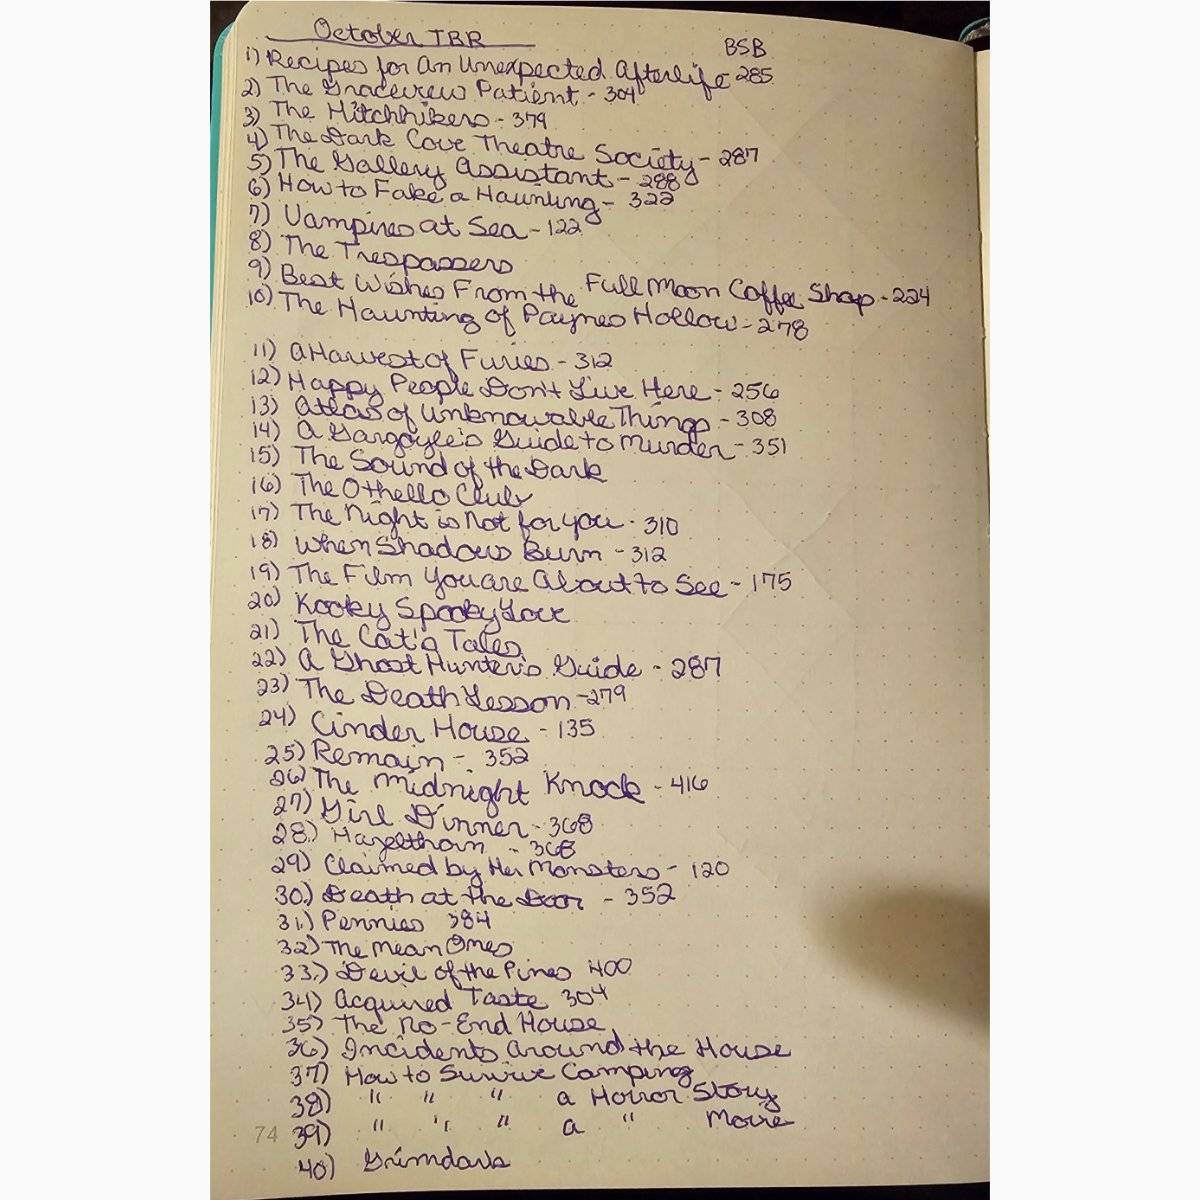 October TBR
BSB
1) Recipes for An Unexpected Afterlife 285
2) The Graceview Patient - 304
3) The Hitchhikers - 379
4) The Dark Cove Theatre Society - 287
5) The Gallery Assistant - 288
6) How to Fake a Haunting - 322
7) Vampires at Sea - 122
8) The Trespassers
9) Best Wishes From the Full Moon Coffee Shop - 224
10) The Haunting of Paynes Hollow - 278
11) A Harvest of Furies - 312
12) Happy People Don't Live Here - 256
13) Atlas of Unknowable Things - 308
14) A Gargoyle's Guide to Murder - 351
15) The Sound of the Dark
16) The Othello Club
17) The Night is Not for you - 310
18) When Shadows Burn - 312
19) The Film You are About to See - 175
20) Kooky Spooky Love
21) The Cat's Tales
22) A Ghost Hunter's Guide - 287
23) The Death Lesson - 279
24) Cinder House - 135
25) Remain - 352
26) The Midnight Knock - 416
27) Girl Dinner - 368
28.) Hazelthorn - 368
29) Claimed by Her Monsters - 120
30.) Death at the Door - 352
31.) Pennies 384
32) The Mean Ones
33.) Devil of the Pines 400
34) Acquired Taste 304
35) The No-End House
36) Incidents Around the House
37) How to Survive Camping
38) " " " a Horror Story
39) " " " a " Movie
74
40)